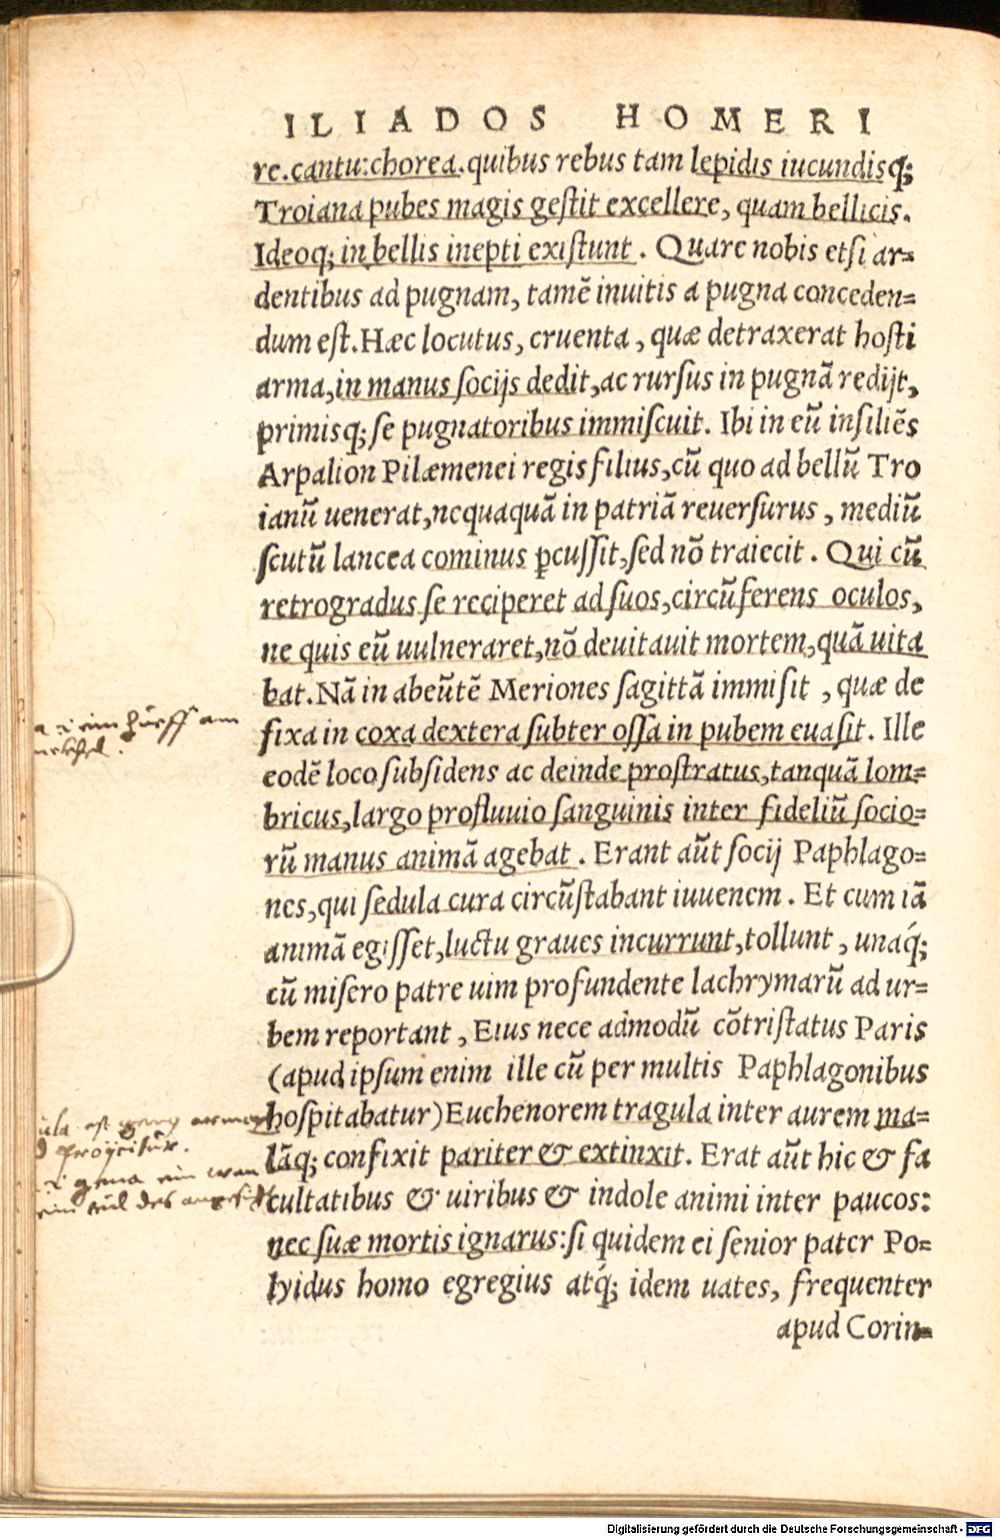 ILIADOS HOMERI
re.cantu:chorea.quibus rebus tam lepidis iucundisq;
Troiana pubes magis geſtit excellere, quam bellicis.
Ideoq; in bellis inepti exiſtunt. Quare nobis etſi ar=
dentibus ad pugnam, tamē inuitis a pugna conceden=
dum eſt. Hæc locutus, cruenta, quæ detraxerat hoſti
arma, in manus ſocijs dedit, ac rurſus in pugnā redijt,
primisq; ſe pugnatoribus immiſcuit. Ibi in eū inſiliēs
Arpalion Pilæmenei regis filius, cū quo ad bellū Tro
ianū uenerat, nequaquā in patriā reuerſurus, mediū
ſcutū lancea cominus ꝑcuſſit, ſed nō traiecit. Qui cū
retrogradus ſe reciperet ad ſuos, circūferens oculos,
ne quis eū uulneraret, nō deuitauit mortem, quā uita
bat. Nā in abeūtē Meriones ſagittā immiſit, quæ de
fixa in coxa dextera ſubter oſſa in pubem euaſit. Ille
eodē loco ſubſidens ac deinde proſtratus, tanquā lom=
bricus, largo profluuio ſanguinis inter fideliū ſocio=
rū manus animā agebat. Erant aūt ſocij Paphlago=
nes, qui ſedula cura circūſtabant iuuenem. Et cum iā
animā egiſſet, luctu graues incurrunt, tollunt, unaq́;
cū miſero patre uim profundente lachrymarū ad ur=
bem reportant, Eius nece admodū cōtriſtatus Paris
(apud ipſum enim ille cū per multis Paphlagonibus
hoſpitabatur) Euchenorem tragula inter aurem ma=
lāq; confixit pariter & extinxit. Erat aūt hic & fa
cultatibus & uiribus & indole animi inter paucos:
nec ſuæ mortis ignarus: ſi quidem ei ſenior pater Po=
lyidus homo egregius atq́; idem uates, frequenter
apud Corin=
Digitalisierung gefördert durch die Deutsche Forschungsgemeinschaft - DFG